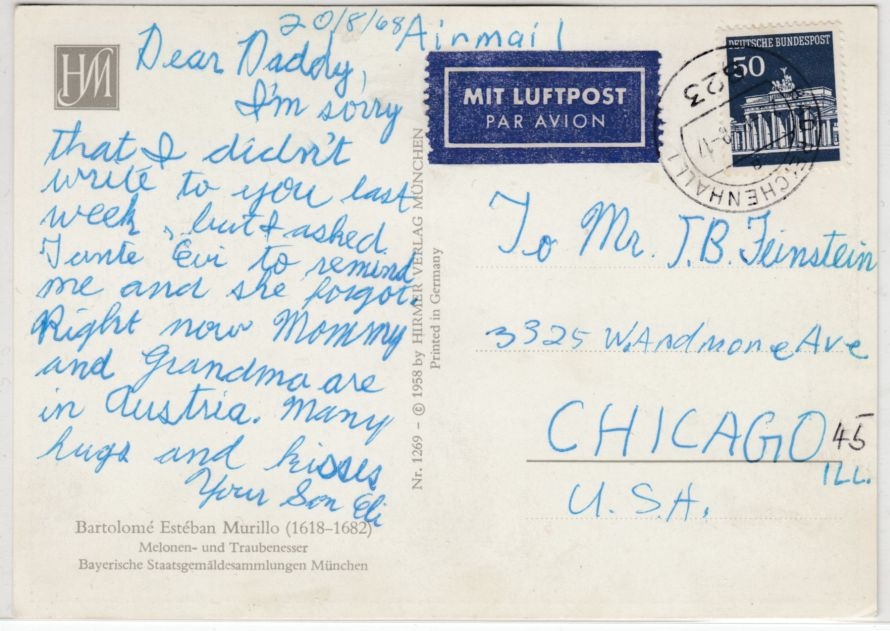 20/8/68 Airmail
Dear Daddy,
I'm sorry
that I didn't
write to you last
week, but I asked
Tante Evi to remind
me and she forgot.
Right now Mommy
and Grandma are
in Austria. Many
hugs and kisses
Your Son Eli
HM
Bartolomé Estéban Murillo (1618–1682)
Melonen- und Traubenesser
Bayerische Staatsgemäldesammlungen München
Nr. 1269 – © 1958 by HIRMER VERLAG MÜNCHEN
Printed in Germany
MIT LUFTPOST
PAR AVION
DEUTSCHE BUNDESPOST
50
823
REICHENHALL 1
To Mr. J.B. Feinstein
3325 W. Andmore Ave
CHICAGO 45
ILL.
U.S.A.